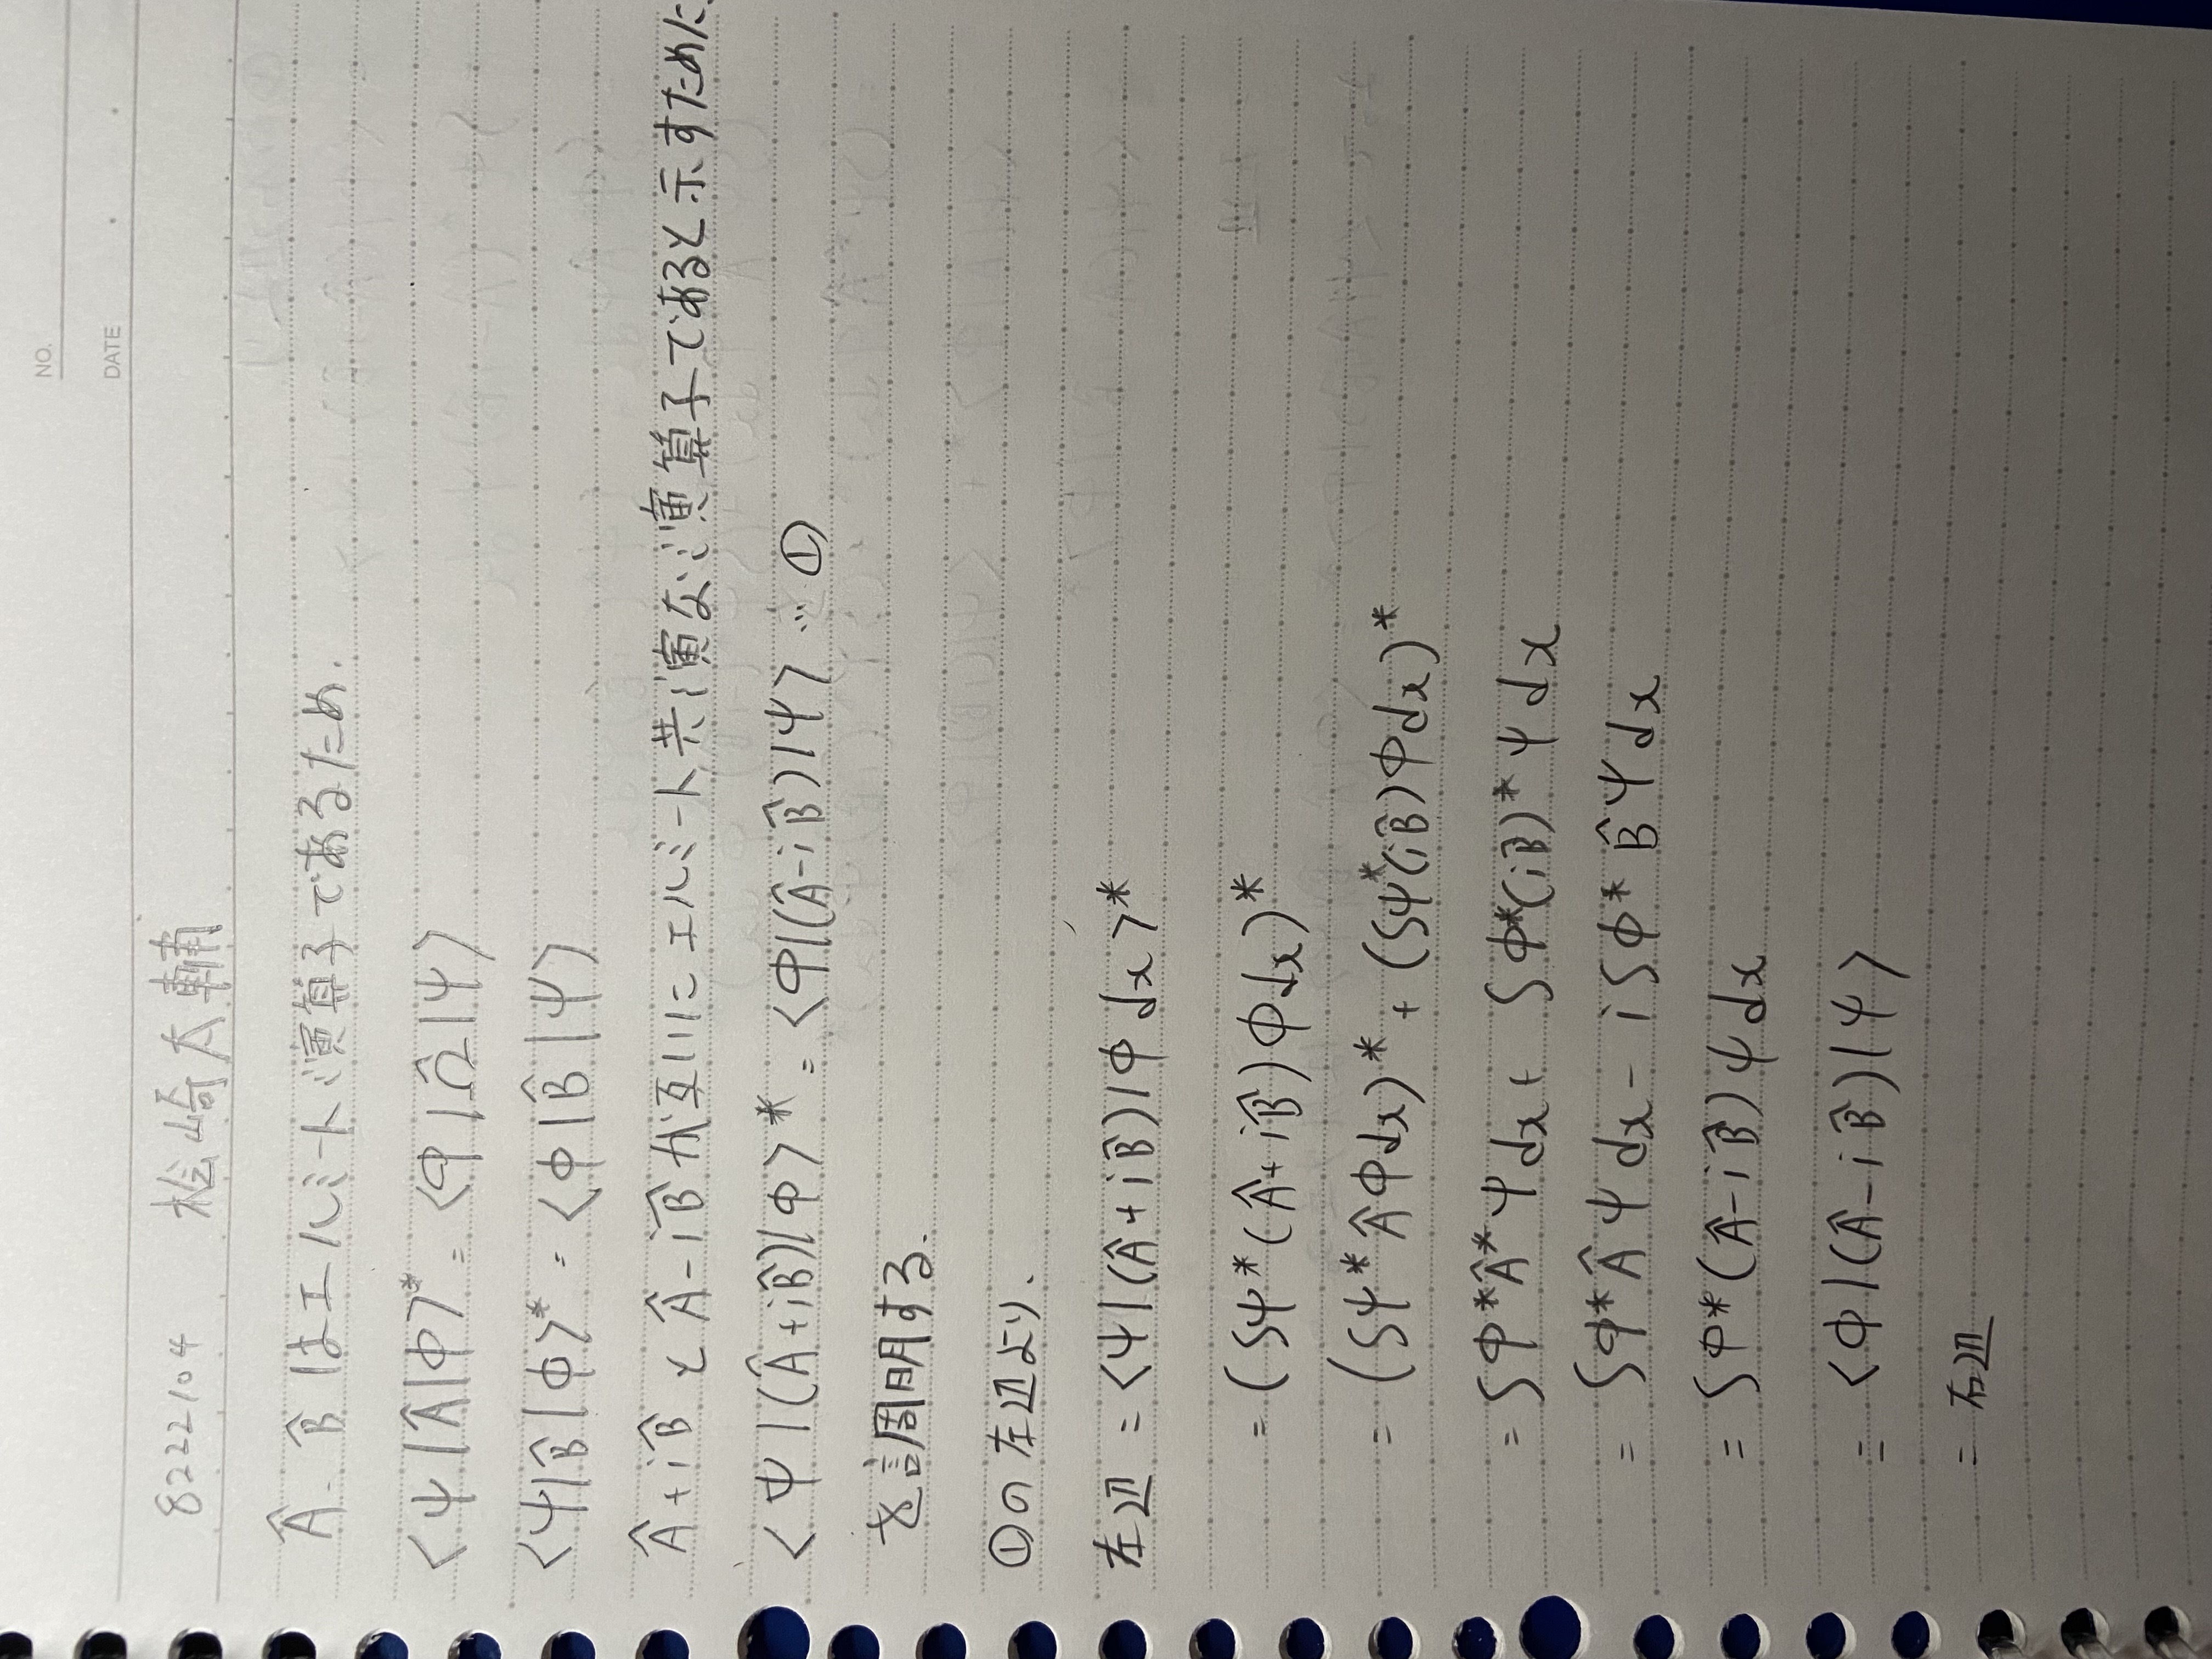 NO.
DATE
8222104 桧崎太輔
Â、B̂はエルミート演算子であるため、
<ψ|Â|φ>* = <φ|Ω̂|ψ>
<ψ|B̂|φ>* = <φ|B̂|ψ>
Â+iB̂とÂ-iB̂が互いにエルミート共演な演算子であると示すために
<ψ|(Â+iB̂)|φ>* = <φ|(Â-iB̂)|ψ> … ①
を調明する.
①の左辺より、
左辺 = <ψ|(Â+iB̂)|φdx>*
= (∫ψ*(Â+iB̂)φdx)*
= (∫ψ*Âφdx)* + (∫ψ*(iB̂)φdx)*
= ∫φ*Â*ψdx + ∫φ*(iB̂)*ψdx
= ∫φ*Âψdx - i∫φ*B̂ψdx
= ∫φ*(Â-iB̂)ψdx
= <φ|(Â-iB̂)|ψ>
= 右辺